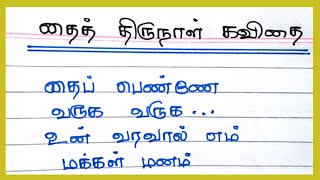 தைத் திருநாள் கவிதை
தைப் பெண்ணே
வருக வருக...
உன் வரவால் எம்
மக்கள் மனம்